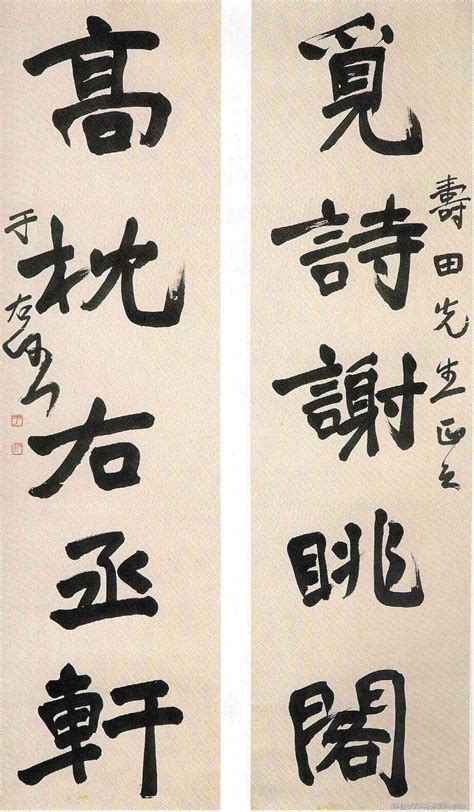 壽田先生正之
覓詩謝眺閣
高枕右丞軒
于右任